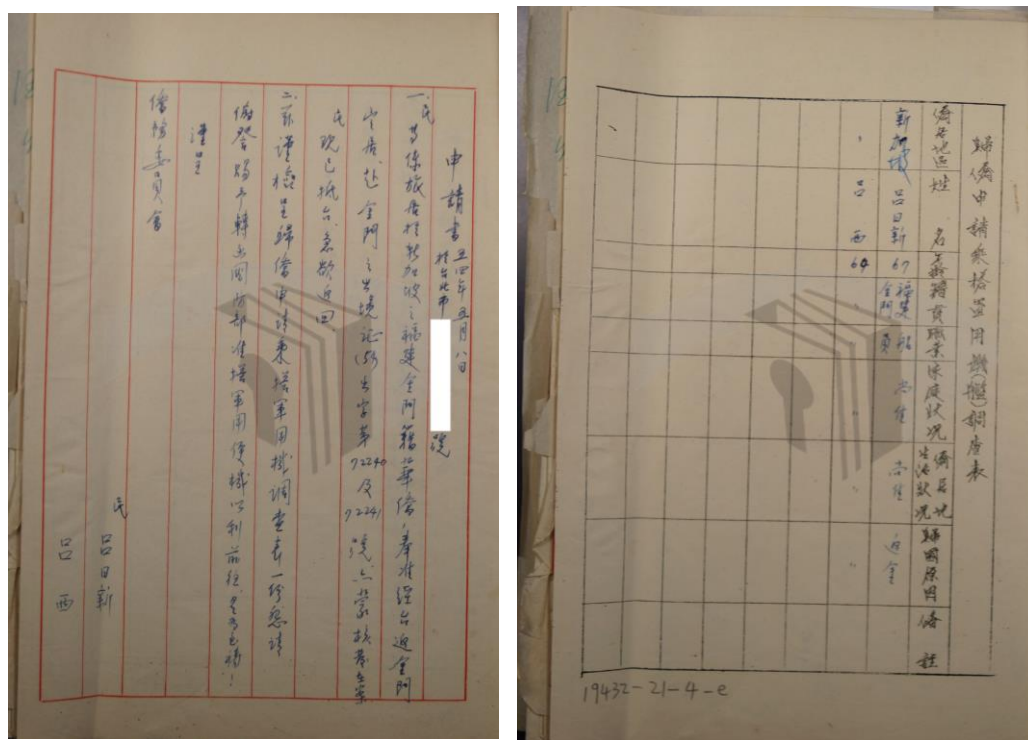 申請書
五四年五月八日
於台北市
號
一、民等係旅居於新加坡之福建金門籍華僑,奉准經台返金門
定居,赴金門之出境證(54)出字第72240及72241號亦蒙核發在案
民現已抵台,急欲返回。
二、茲謹檢呈歸僑申請乘搭軍用機調查表一份懇請
儉發賜予轉函國防部准搭軍用便機以利前往
謹呈
僑務委員會
民
呂日新
呂西
歸僑申請乘搭軍用機(艦)調查表
僑居地區 姓名 年齡 籍貫 職業 保證狀況 僑居地生活狀況 歸國原因 備註
新加坡 呂日新 67 福建金門 船員 尚佳 尚佳 返金
〃 呂西 64 〃 〃 〃
19432-21-4-e